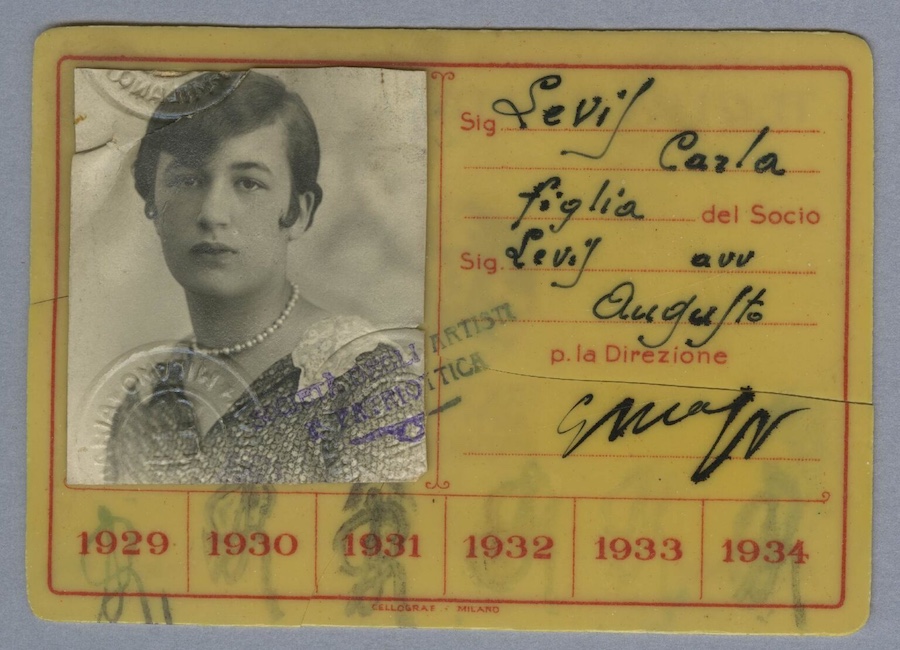 Sig. Levi
Carla
figlia del Socio
Sig. Levi avv
Augusto
p. la Direzione
ARTISTI
1929 1930 1931 1932 1933 1934
CELLOGRAF - MILANO